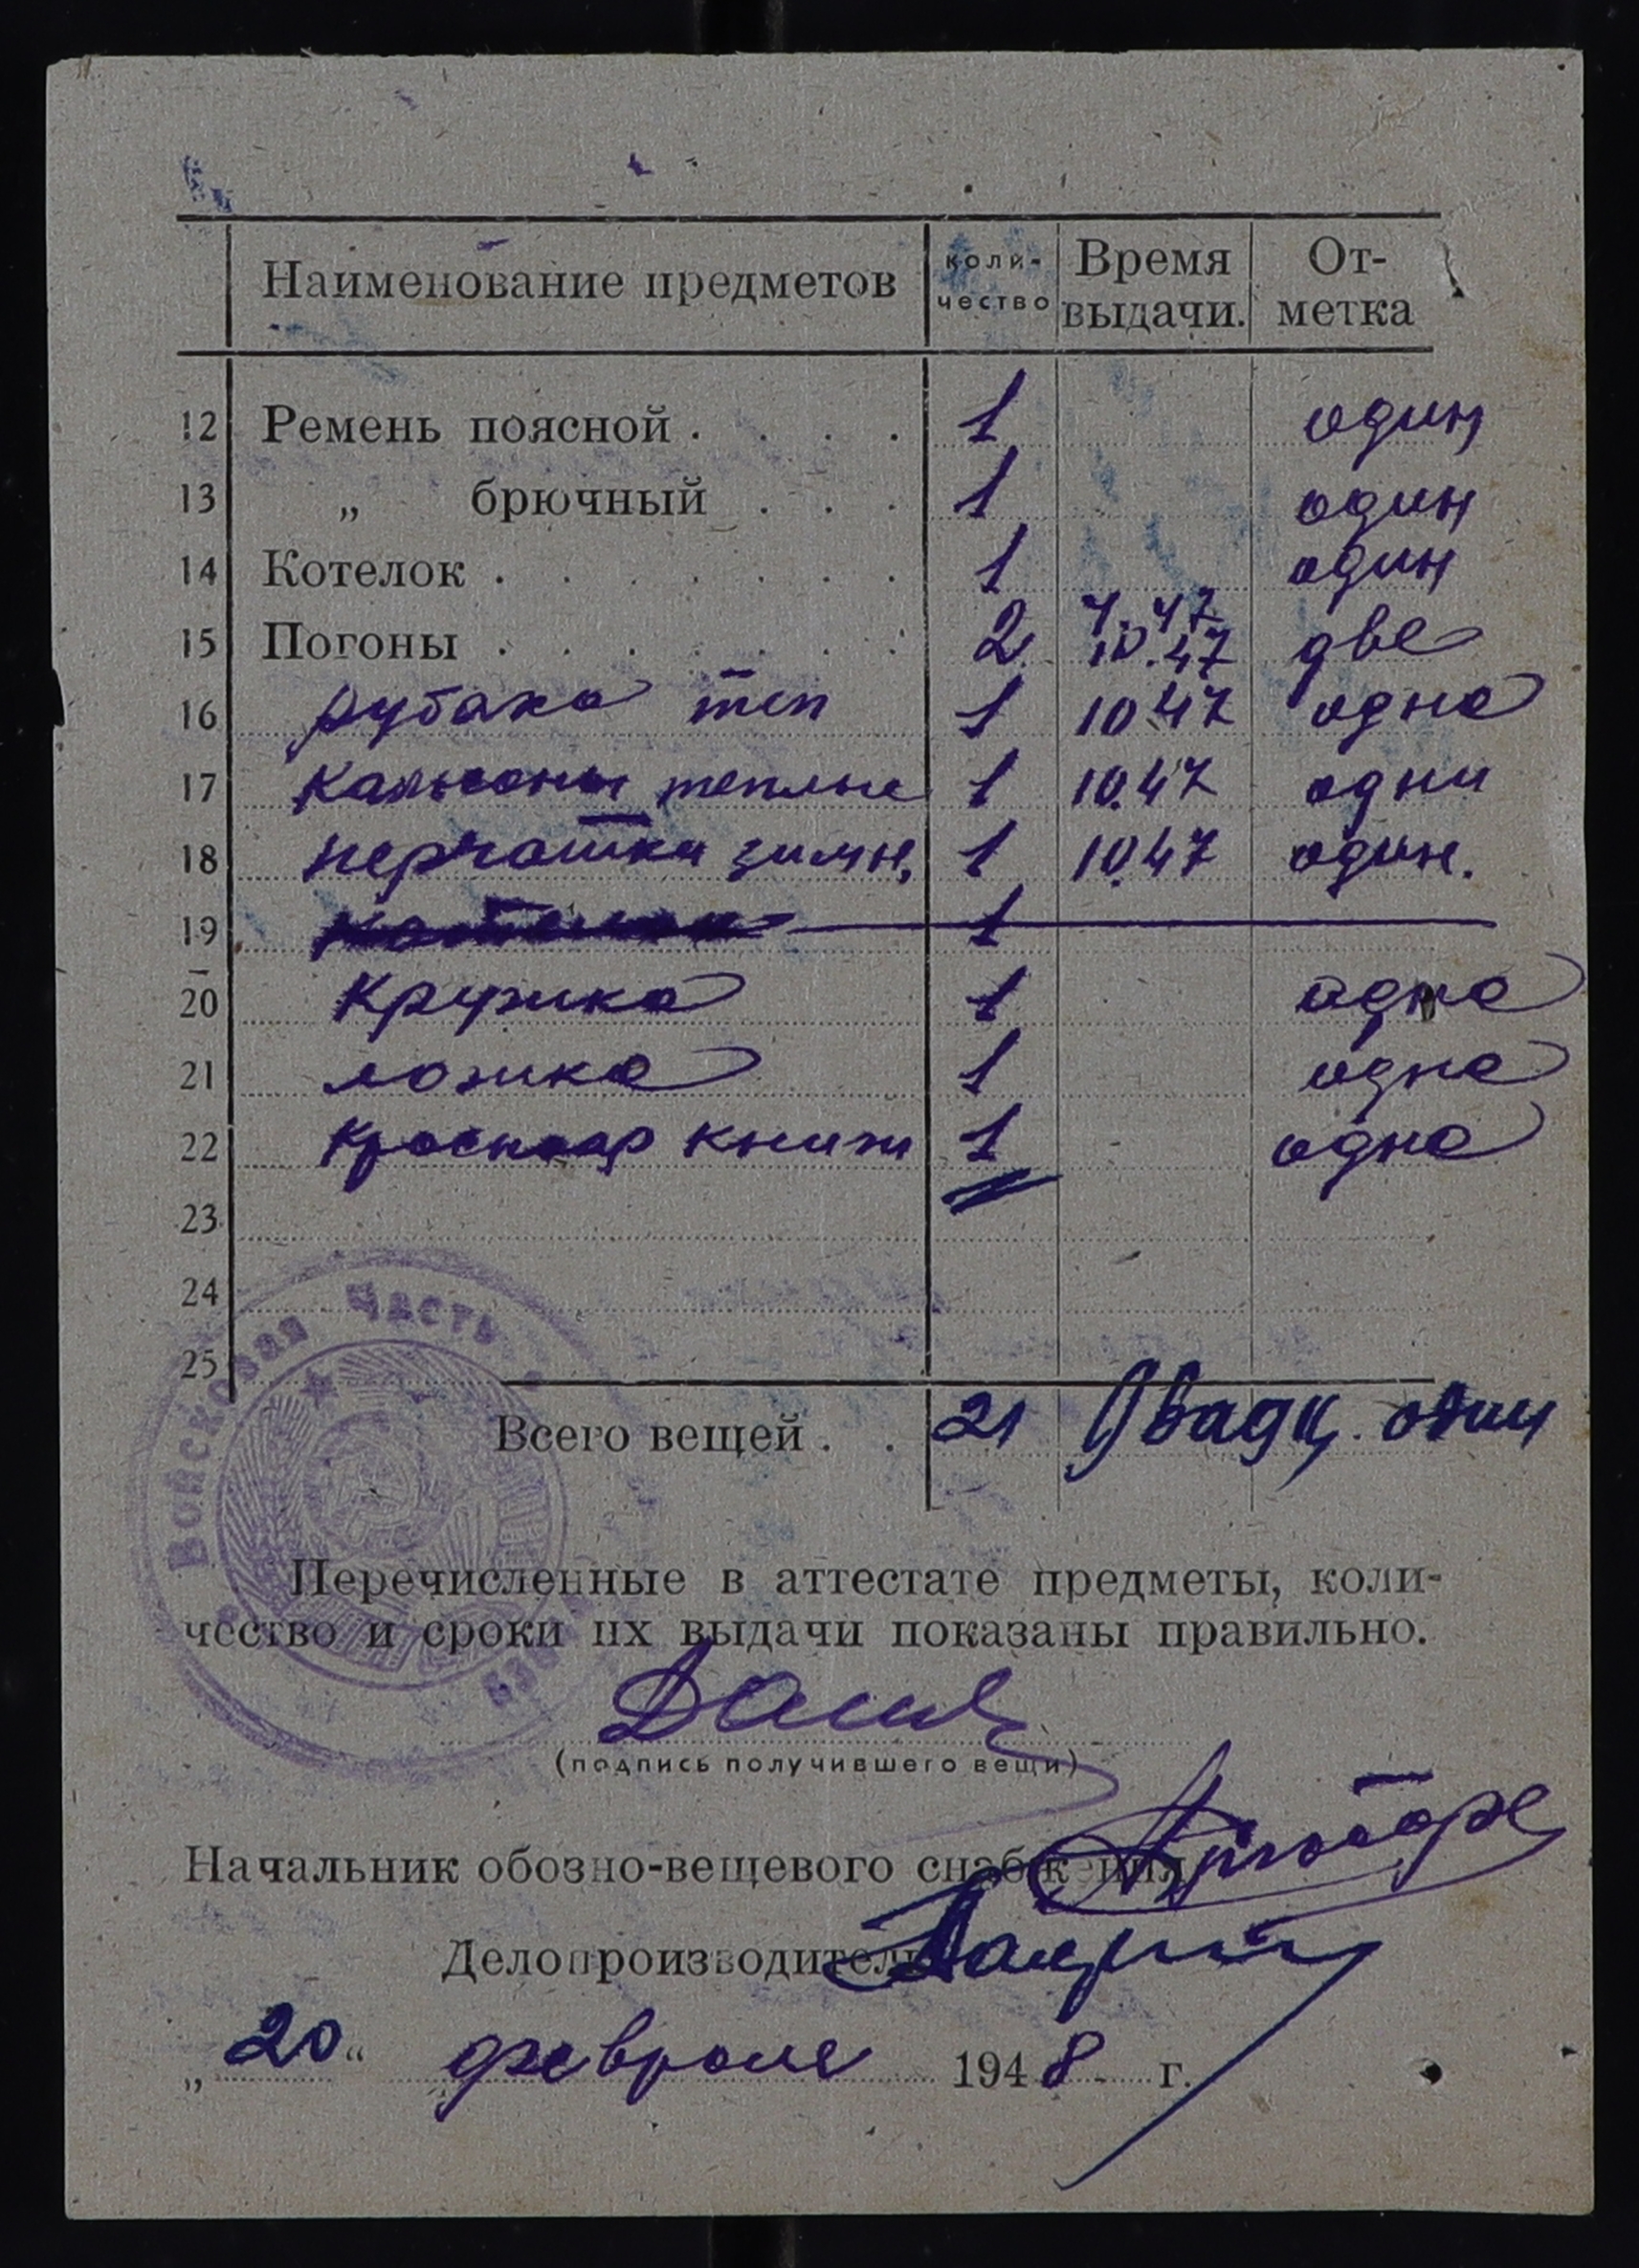 Наименование предметов коли- Время От-
чество выдачи. метка
12 Ремень поясной . . . . 1 один
13 „ брючный . . . 1 один
14 Котелок . . . . . . . 1 один
15 Погоны . . . . . . . 2 10.47 две
16 рубаха теп 1 10 47 одна
17 Кальсоны теплые 1 10.47 одни
18 перчатки зимн. 1 10.47 один.
19 1
20 Кружка 1 одна
21 ложка 1 одна
22 Красноар книж 1 одна
23
24
25
Войсковая часть
Всего вещей . . 21 Двадц. один
Перечисленные в аттестате предметы, коли-
чество и сроки их выдачи показаны правильно.
(подпись получившего вещи)
Начальник обозно-вещевого снабжения
Делопроизводитель
„ 20 “ февраля 1948 г.